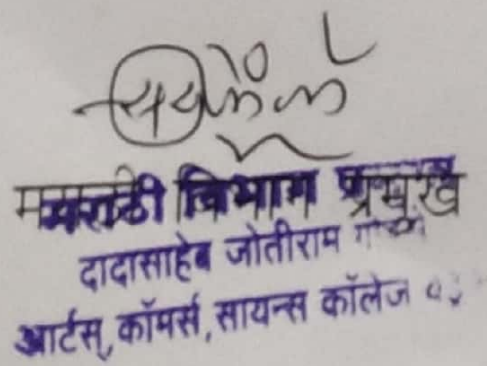 मराठी विभाग प्रमुख
दादासाहेब जोतीराम
आर्टस्, कॉमर्स, सायन्स कॉलेज